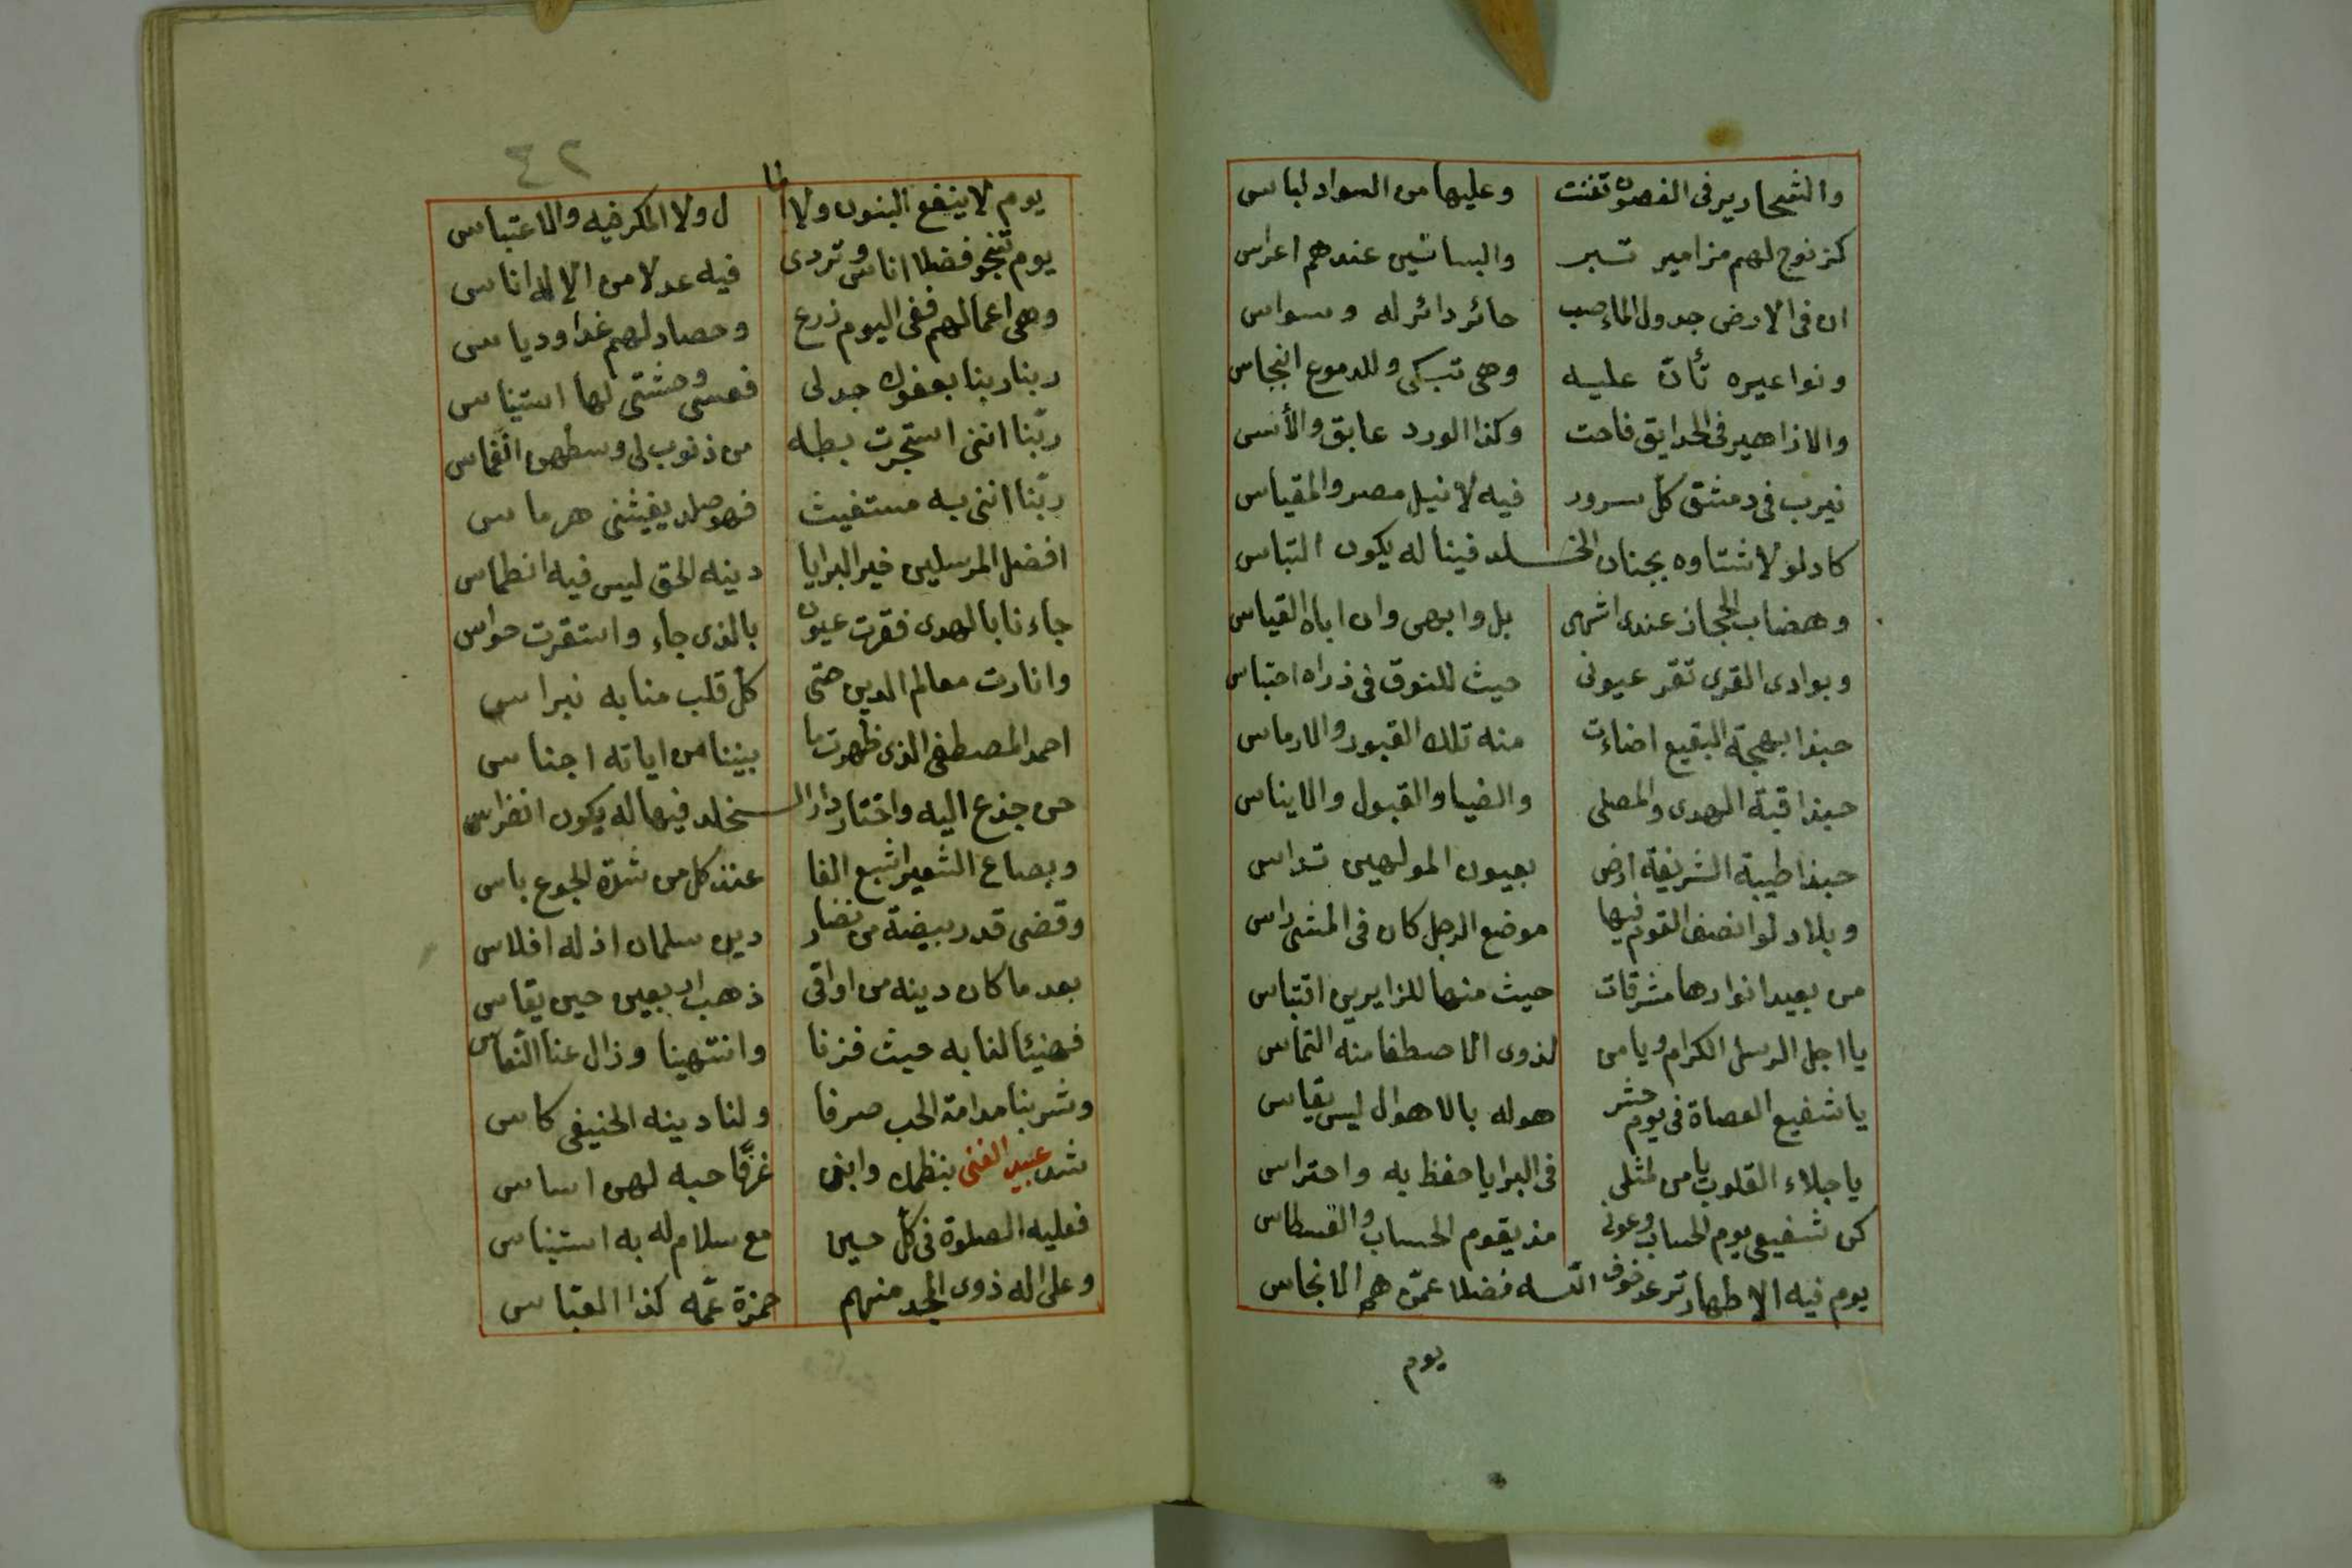 والشحارير في الغصون تغنت وعليها من السواد لباس
كزنوج لهم مزامير تسبر والبساتين عندهم اعراس
ان في الارض جدول الماء صب حائر دائر له وسواس
ونواعيره تأن عليه وهي تبكي وللدموع انبجاس
والازاهير في الحدايق فاحت وكذا الورد عابق والأنس
نيرب في دمشق كل سرور فيه لا نيل مصر والمقياس
كاد لولا شتاوه بجنان الخلد فينا له يكون التباس
وهضاب الحجاز عندى اشهى بل وابهى وان اباه القياس
وبوادى القرى تقر عيونى حيث للنوق في ذراه احتباس
حبذا بهجة البقيع اضاءت منه تلك القبور والارماس
حبذا قبة الهدى والمصلى والضيا والقبول والايناس
حبذا طيبة الشريفة ارض بعيون المولهين تداس
وبلاد لو انصف القوم فيها موضع الرجل كان في المشى راس
من بعيد انوارها مشرقات حيث منها للزايرين اقتباس
يا اجل الرسل الكرام ويا من لذوى الاصطفا منه التماس
يا شفيع العصاة في يوم حشر هوله بالاهوال ليس يقاس
يا جلاء القلوب يا من لمثلى في البرايا حفظ به واحتراس
كن شفيعى يوم الحساب وعونى مذ يقوم الحساب والقسطاس
يوم فيه الاطهار ترعد خوف الله فضلا عمن هم الانجاس
يوم
٢٤
يوم لا ينفع البنون ولا الما ل ولا المكر فيه والاعتباس
يوم تنجو فضلا اناس وتردى فيه عدلا من الاله اناس
وهى اعمالهم ففى اليوم زرع وحصاد لهم غدا ودياس
ربنا ربنا بعفوك جد لى فعسى وحشتى لها استيناس
ربّنا اننى استجرت بطه من ذنوب لى وسطهن انغماس
ربّنا اننى به مستغيث فهو صلد يغيثنى هرماس
افضل المرسلين خير البرايا دينه الحق ليس فيه انطماس
جاءنا بالهدى فقرت عيون بالذى جاء واستقرت حواس
وانارت معالم الدين حتى كل قلب منا به نبراس
احمد المصطفى الذى ظهرت ما بيننا من اياته اجناس
حن جذع اليه واختار دار الخلد فيها له يكون انغراس
وبصاع الشعير اشبع الفا عند كل من شدة الجوع باس
وقضى قدر بيضة من نضار دين سلمان اذ له افلاس
بعد ما كان دينه من اواقى ذهب اربعين حين يقاس
فهنيئا لنا به حيث فزنا وانتهينا وزال عنا النعاس
وشربنا مدامة الحب صرفا ولنا دينه الحنيفى كاس
شد عبيد الغنى بنظمك وابنى غرفا حبه لهن اساس
فعليه الصلوة فى كل حين مع سلام له به استيناس
وعلى اله ذوى المجد منهم حمزة عمّه كذا العباس